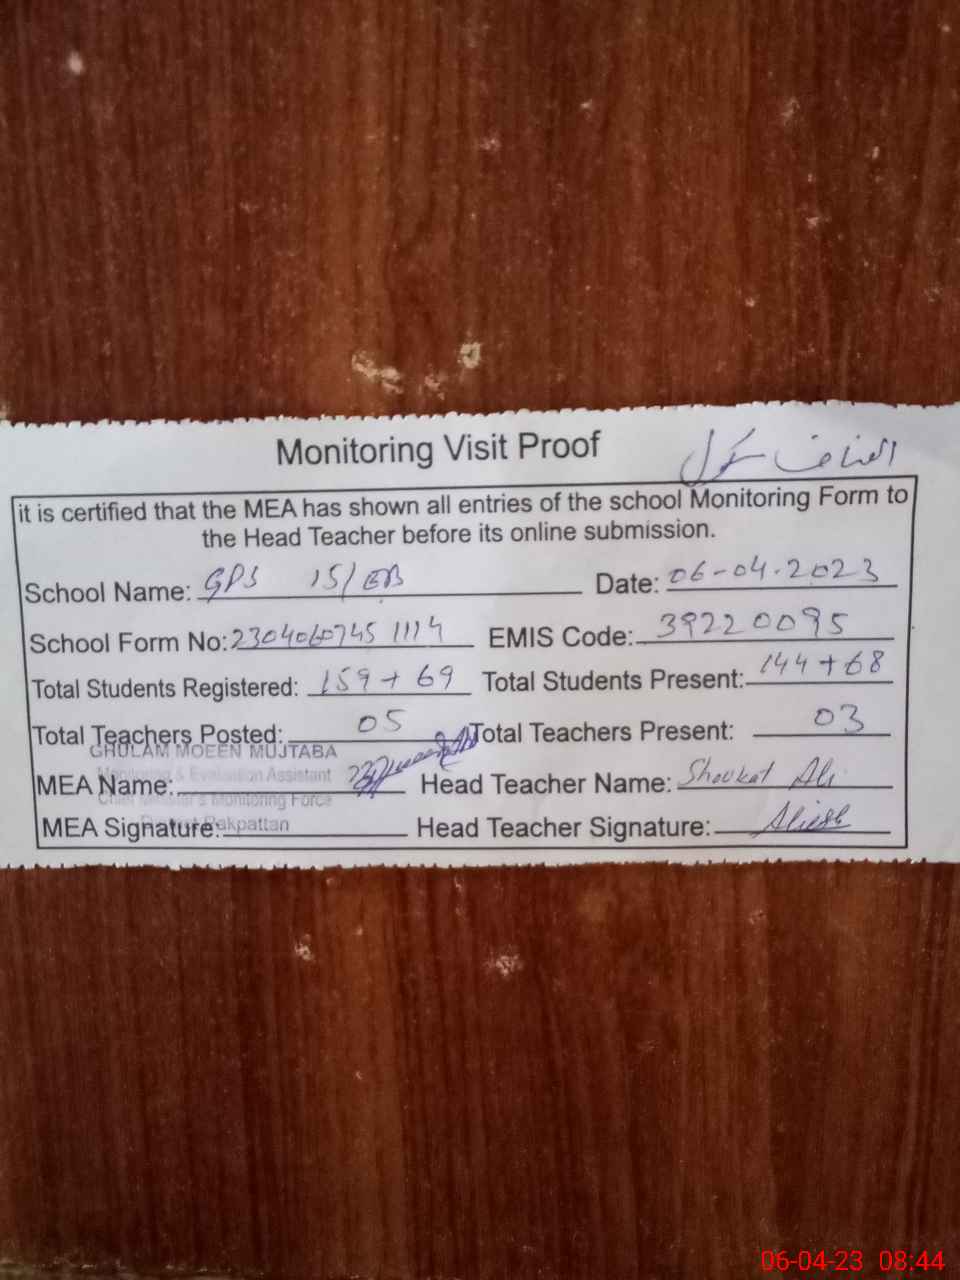 Monitoring Visit Proof
انصاف سکول
it is certified that the MEA has shown all entries of the school Monitoring Form to
the Head Teacher before its online submission.
School Name: GPS 15/EB Date: 06-04-2023
School Form No: 2304060745 1114 EMIS Code: 39220095
Total Students Registered: 159+69 Total Students Present: 144+68
Total Teachers Posted: 05 Total Teachers Present: 03
GHULAM MOEEN MUJTABA
Monitoring & Evaluation Assistant
MEA Name: Head Teacher Name: Shoukat Ali
Chief Minister's Monitoring Force
MEA Signature: Pakpattan Head Teacher Signature:
06-04-23 08:44